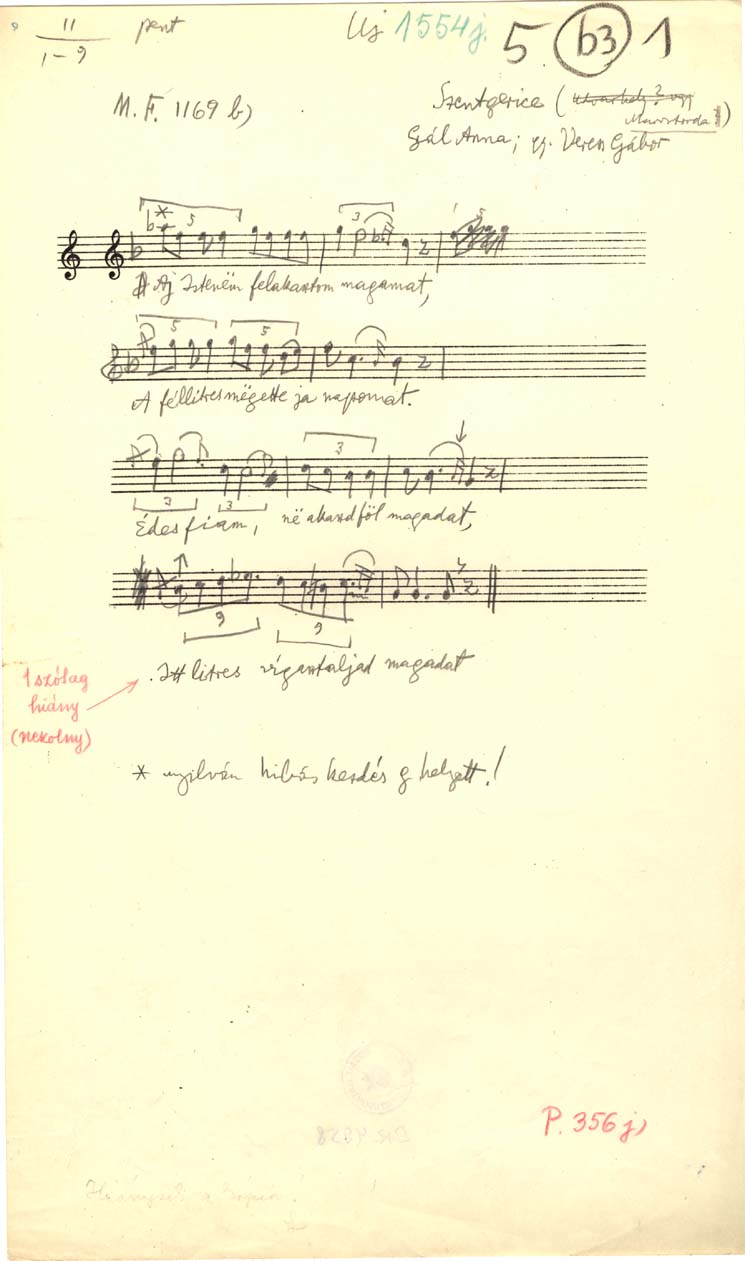 11 pent Uj 1554j. 5 b3 1
1-9
M.F. 1169 b) Szentgerice (Udvarhely? vgy
Marostorda)
Gál Anna; gy. Veress Gábor
5 3 5
Aj Istenëm felakasztom magamat,
5 5
A féllitres mëgette ja napomat.
3
3 3
Édes fiam, në akaszd föl magadat,
9 9
Itt litres vígasztaljad magadat
1 szólag
hiány
(nekolny)
* nyilván hibás kezdés g helyett!
P. 356 j)